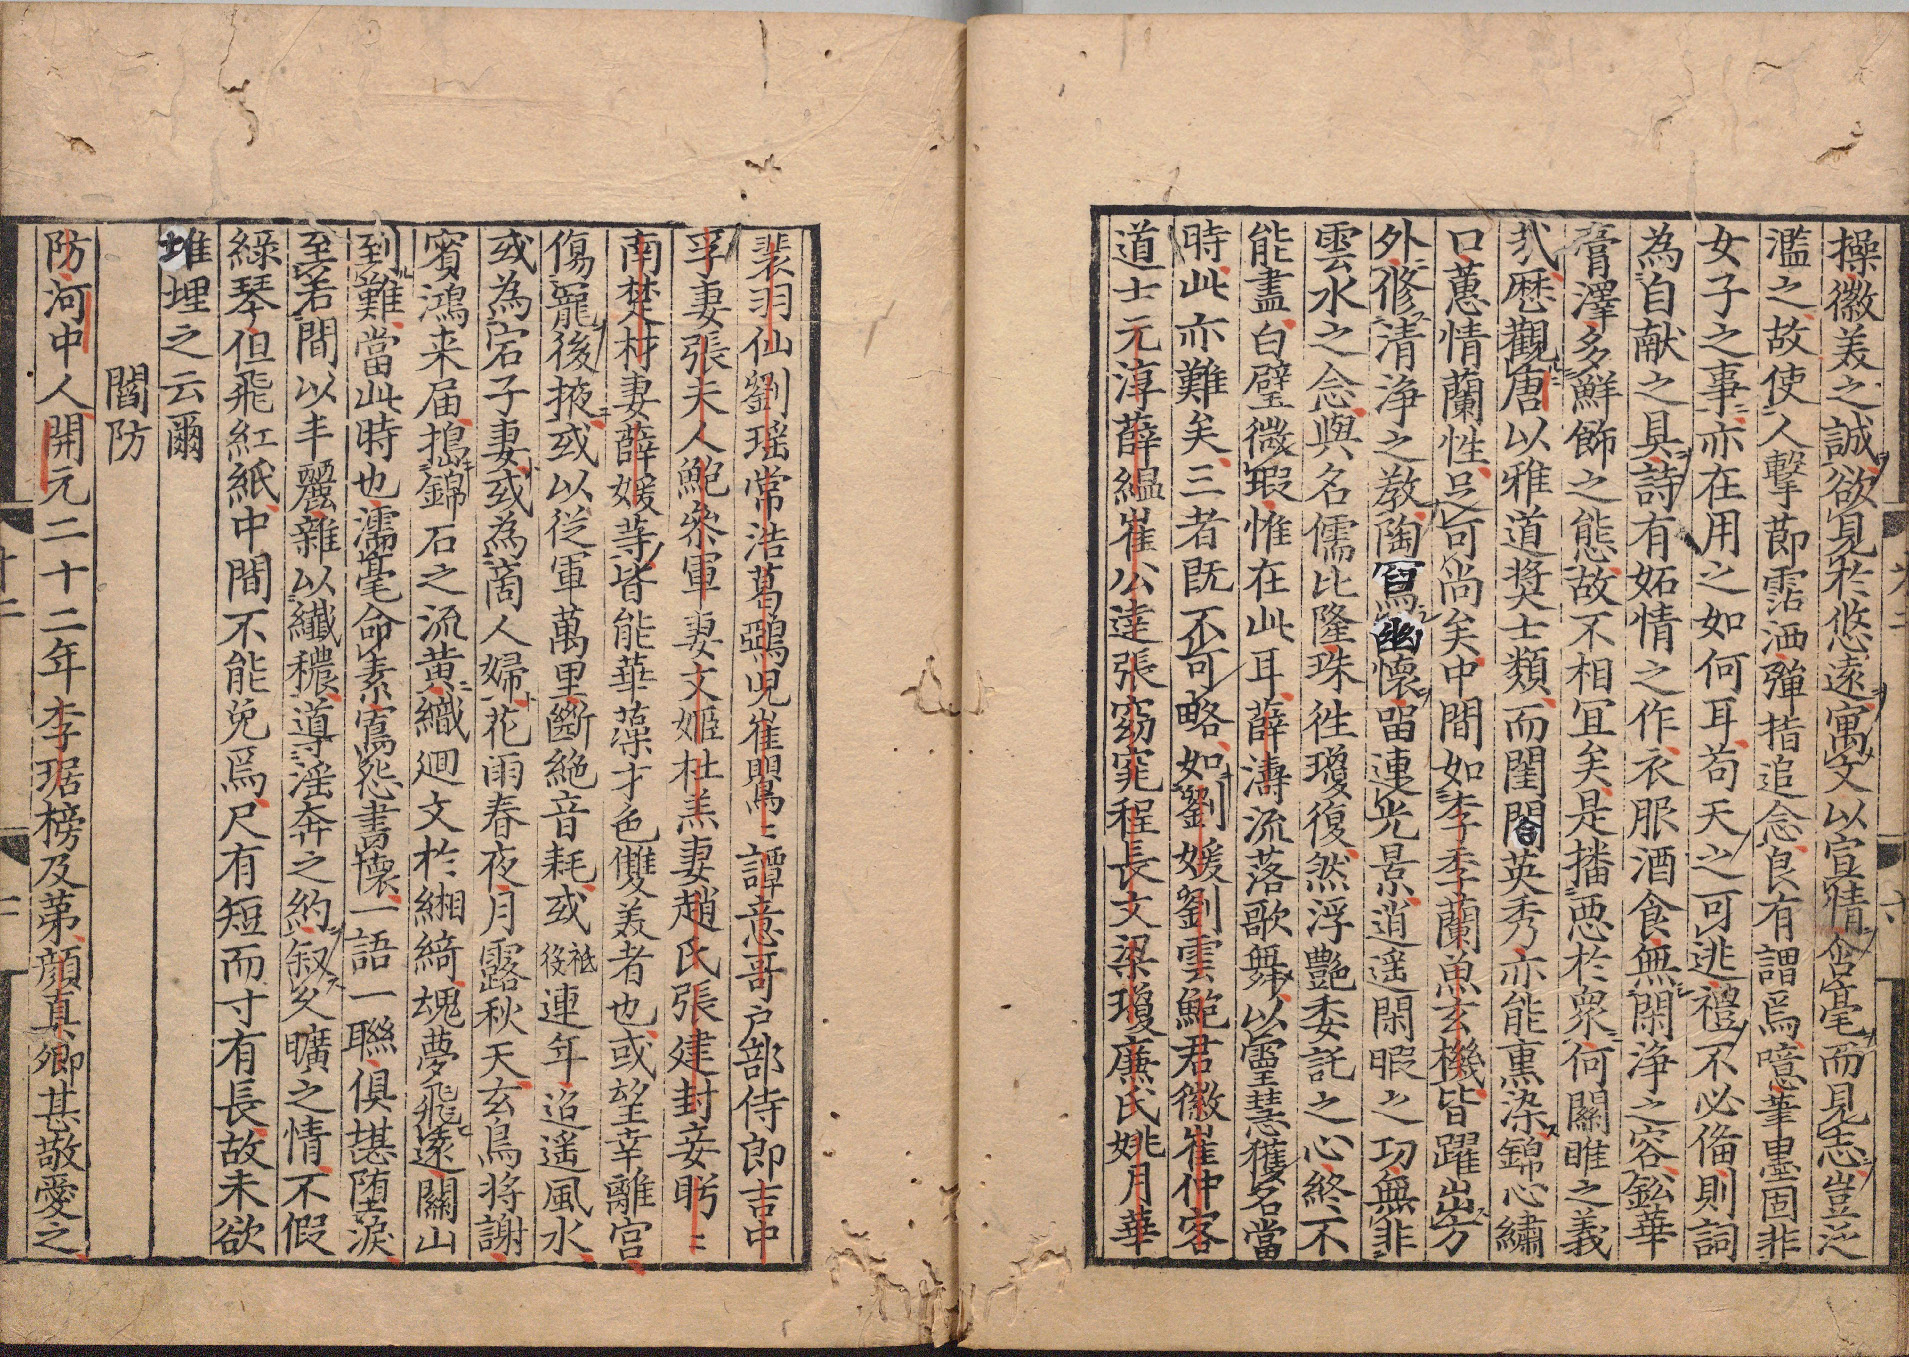 操徽美之誠欲見於悠遠寓文以宣情含毫而見志豈泛
濫之故使人擊節霑洒彈指追念良有謂焉噫筆墨固非
女子之事亦在用之如何耳苟天之可逃禮不必備則詞
為自献之具詩有妬情之作衣服酒食無閑浄之容鈆華
膏澤多鮮飾之態故不相冝矣是播惡於衆何關睢之義
㢤歴觀唐以雅道奨士類而閨閤英秀亦能熏染錦心繡
口蕙情蘭性足可尚矣中間如李季蘭魚玄機皆躍出方
外修清浄之教陶寫幽懷畱連光景逍遥閑暇之功無非
雲水之念與名儒比隆珠徃瓊復然浮艶委託之心終不
能盡白璧微瑕惟在此耳薛濤流落歌舞以靈慧獲名當
時此亦難矣三者既不可略如劉媛劉雲鮑君徽崔仲容
道士元淳薛緼崔公逹張窈窕程長文梁瓊廉氏姚月華
裴羽仙劉瑶常浩葛鵶児崔鶯〻譚意哥户部侍郎吉中
孚妻張夫人鮑參軍妻文姬杜羔妻趙氏張建封妾盻〻
南楚材妻薛媛等皆能華藻才色雙美者也或望幸離宫
傷寵後掖或以從軍萬里斷絶音耗或祗役連年迢遥風水
或為宕子妻或為商人婦花雨春夜月露秋天玄鳥将謝
賓鴻来届搗錦石之流黄織迴文於緗綺魂夢飛遠關山
到難當此時也濡毫命素寫怨書懷一語一聯俱堪堕淚
至若間以丰麗雜以纖穠導滛奔之約叙久曠之情不假
綠琴但飛紅紙中間不能免焉尺有短而寸有長故未欲
堆埋之云爾
閻防
防河中人開元二十二年李琚榜及第顔真卿甚敬愛之